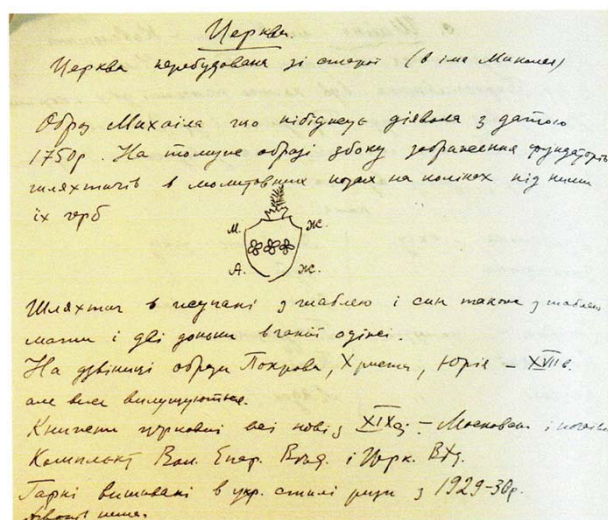 Церква.
Церква перебудована зі старої (в імя Миколая)
Образ Михаїла що побіджує діявола з датою
1750р. На тому же образі збоку зображення фундаторів
шляхтичів в молитовних позах на колінах під ними
їх герб
М. Ж.
А. Ж.
Шляхтич в жупані з шаблею і син також з шаблею
мати і дві доньки в одінє.
На дзвіниці образи Покрова, Христа, Юрія – XVII в.
але вже вилущуються.
Книжки церковні всі нові з XIX – Московські і
Комплект Вол. Епар. Від. і Церк. Від.
Гарні вишивані в укр. стилі ризи з 1929-30р.